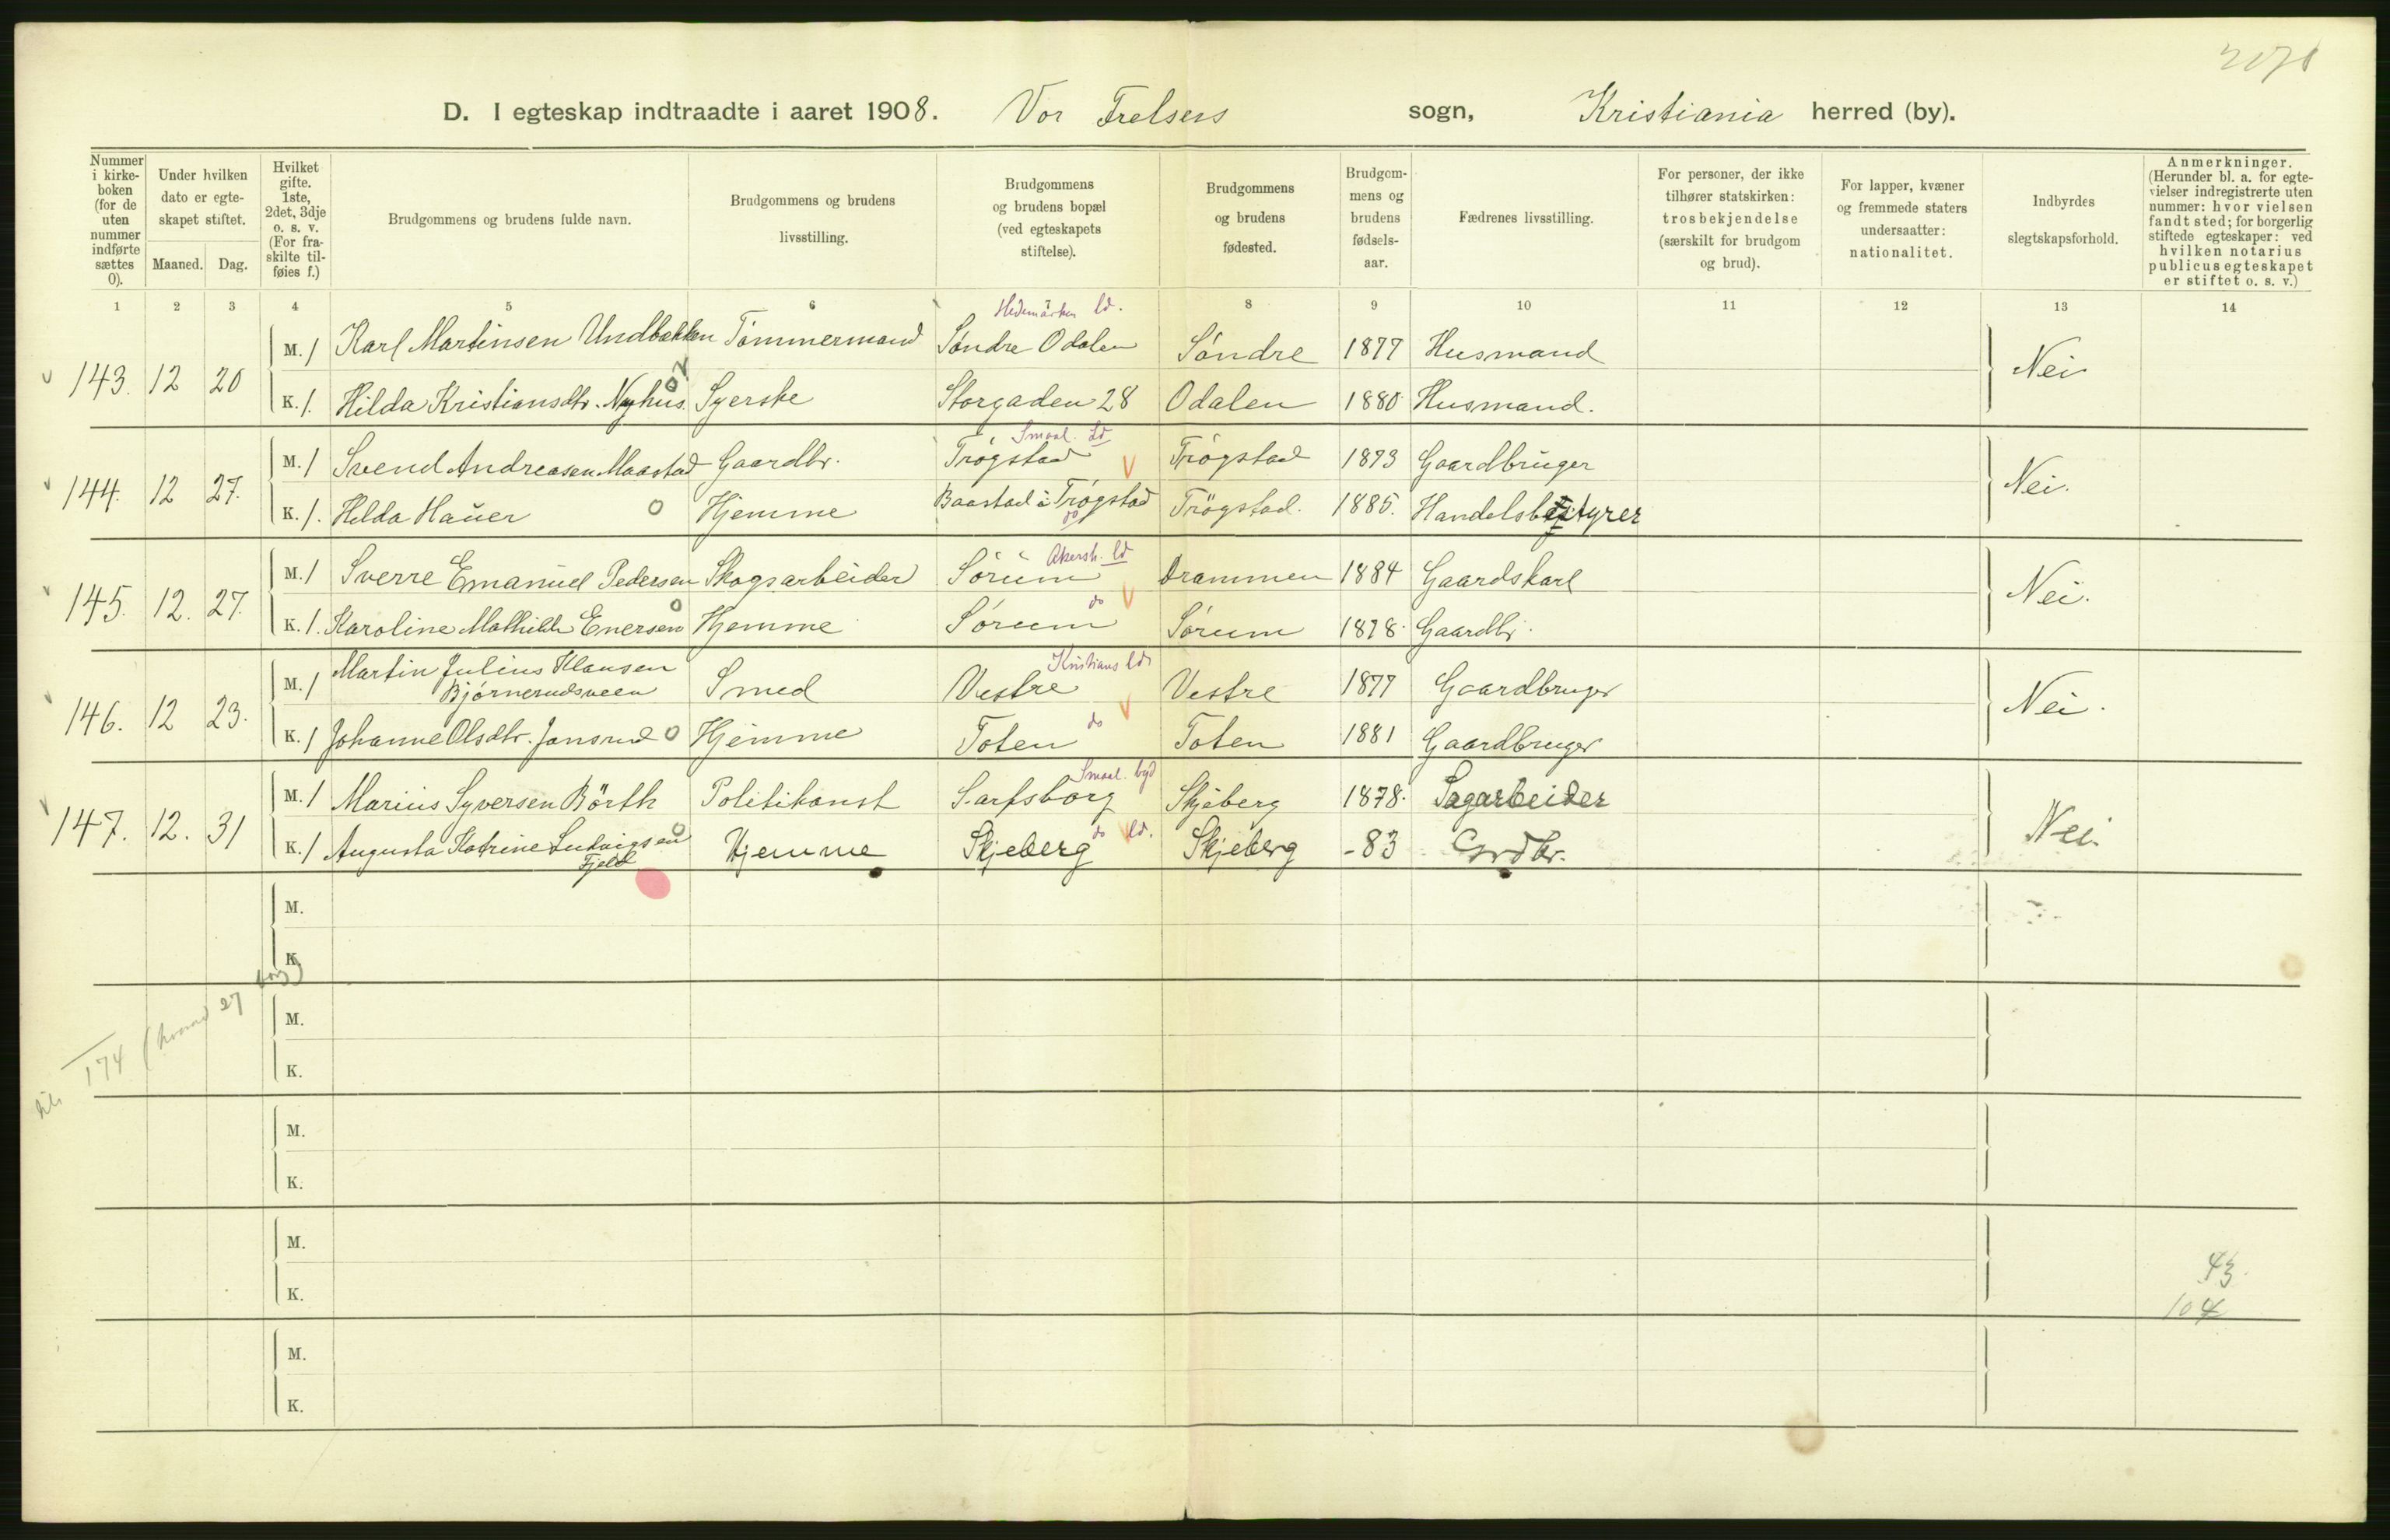 D. I egteskap indtraadte i aaret 1908. Vor Frelsers sogn, Kristiania herred (by).
Nummer i kirkeboken (for de uten nummer indførte sættes 0).
Under hvilken dato er egteskapet stiftet.
Maaned. Dag.
Hvilket gifte. 1ste, 2det, 3dje o. s. v. (For fraskilte tilføies f.)
Brudgommens og brudens fulde navn.
Brudgommens og brudens livsstilling.
Brudgommens og brudens bopæl (ved egteskapets stiftelse).
Brudgommens og brudens fødested.
Brudgommens og brudens fødselsaar.
Fædrenes livsstilling.
For personer, der ikke tilhører statskirken: trosbekjendelse (særskilt for brudgom og brud).
For lapper, kvæner og fremmede staters undersaatter: nationalitet.
Indbyrdes slegtskapsforhold.
Anmerkninger. (Herunder bl. a. for egtevielser indregistrerte uten nummer: hvor vielsen fandt sted; for borgerlig stiftede egteskaper: ved hvilken notarius publicus egteskapet er stiftet o. s. v.)
1 2 3 4 5 6 8 9 10 11 12 13 14
Hedemarken ld.
M. 1 Karl Martinsen Undbakken Tömmermand Söndre Odalen Söndre 1877 Husmand
143. 12 20 Nei
K. 1. Hilda Kristiansdtr. Nyhus Syerske Storgaden 28 Odalen 1880 Husmand.
Smaal. Ld
M. 1 Svend Andreasen Maastad Gaardbr. Trögstad V Trögstad 1873 Gaardbruger
144. 12 27. Nei.
K. 1. Hilda Hauer 0 Hjemme Baastad i Trögstad Trögstad. 1885. Handelsbestyrer
do
Akersh. ld
M. 1 Sverre Emanuel Pedersen Skogsarbeider Sörum Drammen 1884 Gaardskarl
145. 12. 27. do V Nei.
K. 1. Karoline Mathilde Enersen 0 Hjemme Sörum Sörum 1878. Gaardbr.
Kristians ld
M. 1 Martin Julius Klausen Bjørnerudsveen Smed Vestre Vestre 1877 Gaardbruger
146. 12 23. do V Nei.
K. 1 Johanne Olsdtr. Jansrud 0 Hjemme Toten Toten 1881 Gaardbruger
Smaal. byd
M. 1 Marius Syversen Börth Politikonst Sarpsborg Skjeberg 1878. Sagarbeider
147. 12. 31 do ld. Nei.
K. 1 Augusta Katrine Ludvigsen Fjeld 0 Hjemme Skjeberg Skjeberg -83 Grdbr.
M.
K.
M.
K.
174 27
M.
K.
M.
K.
43
104
M.
K.